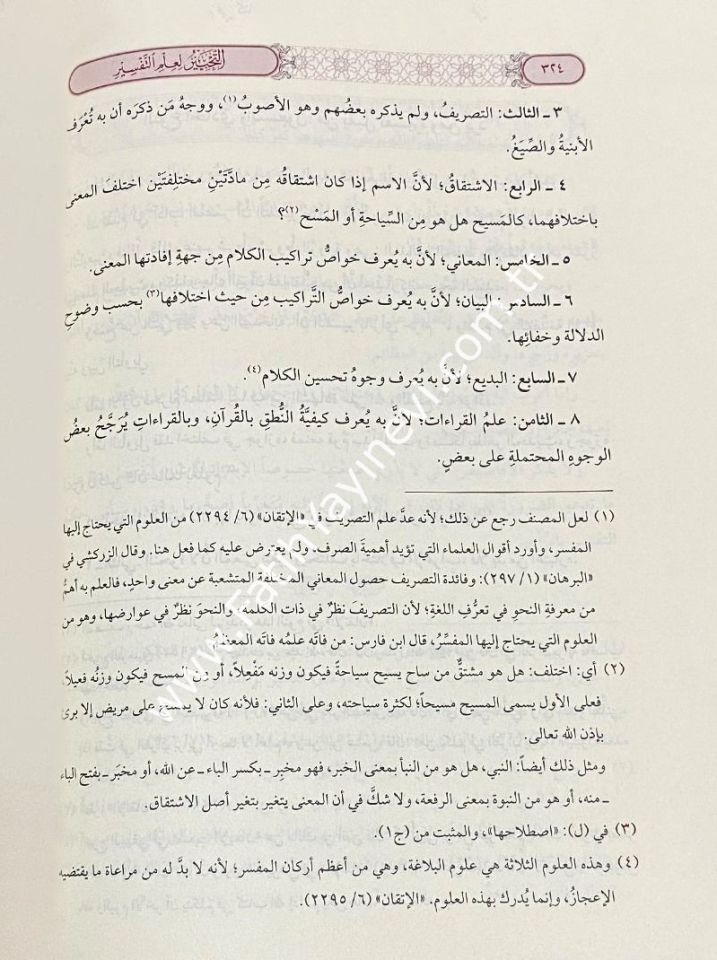 ٣٢٤
التحبير لعلم التفسير
٣ ـ الثالث: التصريفُ، ولم يذكره بعضُهم وهو الأصوبُ(١)، ووجهُ مَن ذكرَه أن به تُعْرَف
الأبنيةُ والصِّيَغُ.
٤ ـ الرابع: الاشتقاقُ؛ لأنَّ الاسم إذا كان اشتقاقُه مِن مادَّتَيْنِ مختلِفتَيْن اختلفَ المعنى
باختلافهما، كالمَسيح هل هو مِن السِّياحةِ أو المَسْح(٢)؟
٥ ـ الخامس: المعاني؛ لأنَّ به يُعرف خواصُّ تراكيب الكلام مِن جهةِ إفادتها المعنى.
٦ ـ السادس: البيان؛ لأنَّ به يُعرف خواصُّ التَّراكيب مِن حيث اختلافها(٣) بحسب وضوحِ
الدلالة وخفائِها.
٧ ـ السابع: البديع؛ لأنَّ به يُعرف وجوهُ تحسين الكلام(٤).
٨ ـ الثامن: علمُ القراءات؛ لأنَّ به يُعرف كيفيَّةُ النُّطقِ بالقُرآنِ، وبالقراءاتِ يُرَجَّحُ بعضُ
الوجوهِ المحتملةِ على بعضٍ.
(١) لعل المصنف رجع عن ذلك؛ لأنه عدَّ علم التصريف في «الإتقان» (٦/ ٢٢٩٤) من العلوم التي يحتاج إليها
المفسر، وأورد أقوال العلماء التي تؤيد أهميةَ الصرف، ولم يعترض عليه كما فعل هنا. وقال الزركشي في
«البرهان» (١/ ٢٩٧): وفائدة التصريف حصول المعاني المختلفة المتشعبة عن معنى واحدٍ، فالعلم به أهمُّ
من معرفةِ النحوِ في تعرُّفِ اللغةِ؛ لأن التصريفَ نظرٌ في ذات الكلمه، والنحوَ نظرٌ في عوارضها، وهو من
العلوم التي يحتاج إليها المفسِّرُ، قال ابن فارس: من فاتَه علمُه فاتَه المعظمُ.
(٢) أي: اختلف: هل هو مشتقٌّ من ساح يسيح سياحةً فيكون وزنه مَفْعِلاً، أو من المسح فيكون وزنُه فعيلاً،
فعلى الأول يسمى المسيح مسيحاً؛ لكثرة سياحته، وعلى الثاني: فلأنه كان لا يمسح على مريض إلا برئ
بإذن الله تعالى.
ومثل ذلك أيضاً: النبي، هل هو من النبأ بمعنى الخبر، فهو مخبِر ـ بكسر الباء ـ عن الله، أو مخبَر ـ بفتح الباء
ـ منه، أو هو من النبوة بمعنى الرفعة، ولا شكَّ في أن المعنى يتغير بتغير أصل الاشتقاق.
(٣) في (ل): «اصطلاحها»، والمثبت من (ج١).
(٤) وهذه العلوم الثلاثة هي علوم البلاغة، وهي من أعظم أركان المفسر؛ لأنه لا بدَّ له من مراعاة ما يقتضيه
الإعجازُ، وإنما يُدرك بهذه العلوم. «الإتقان» (٦/ ٢٢٩٥).
www.FatihYayinevi.com.tr